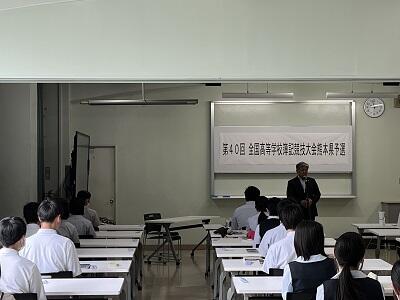 第40回 全国高等学校簿記競技大会熊本県予選